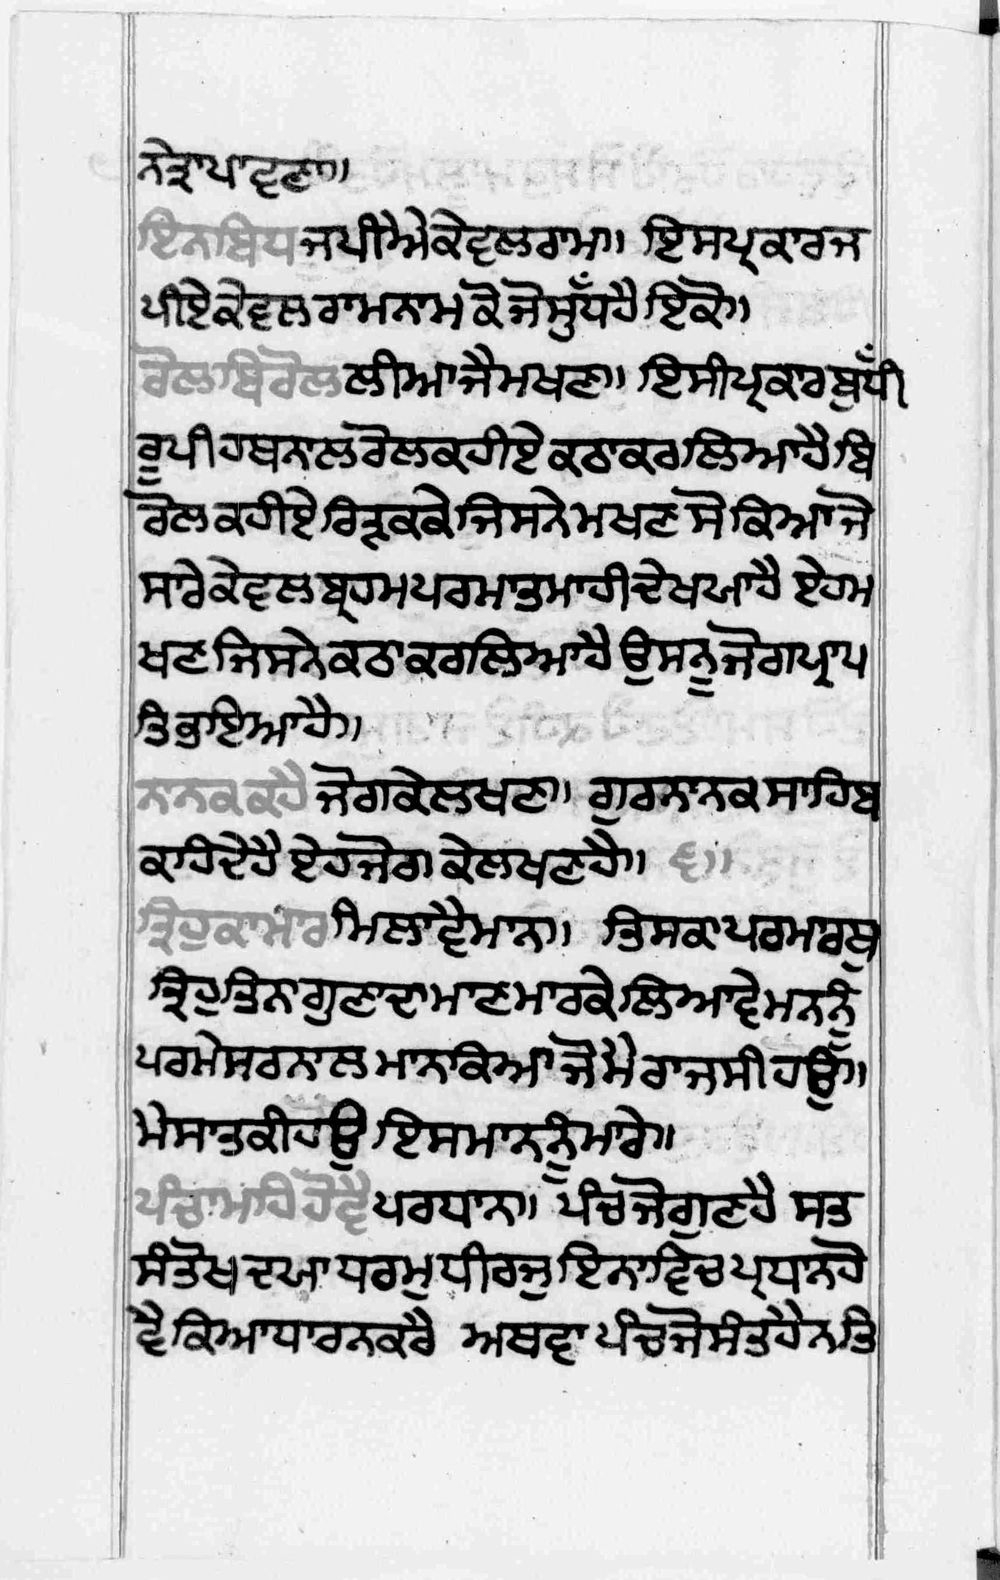 ਨੇਤ੍ਰਾਪਾਵਣਾ॥
ਇਨਬਿਧਜਪੀਐਕੇਵਲਰਾਮਾ॥ ਇਸਪ੍ਰਕਾਰਜ
ਪੀਏਕੇਵਲਰਾਮਨਾਮਕੋਜੋਸੁੱਧਹੈਇਕੋ॥
ਰੋਲਬਿਰੋਲਲੀਆਜੈਮਖਣਾ॥ ਇਸੀਪ੍ਰਕਾਰਬੁੱਧੀ
ਰੂਪੀਹਥਨਾਲਰੋਲਕਹੀਏਕਠਾਕਰਲਿਆਹੈਬਿ
ਰੋਲਕਹੀਏਰਿੜਕਕੇਜਿਸਨੇਮਖਣਸੋਕਿਆਜੋ
ਸਾਰੇਕੇਵਲਬ੍ਰਹਮਪਰਮਾਤਮਾਹੀਦੇਖਯਾਹੈ ਏਹਮ
ਖਣਜਿਸਨੇਕਠਾਕਰਲਿਆਹੈਉਸਨੂਜੋਗਪ੍ਰਾਪ
ਤਿਭਇਆਹੈ॥
ਨਾਨਕਕਹੈਜੋਗਕੇਲਖਣਾ॥ ਗੁਰਨਾਨਕਸਾਹਿਬ
ਕਾਹਿਦੇਹੈਏਹਜੋਗਕੇਲਖਣਹੈ॥ ੬॥
ਤ੍ਰਿਹੁਕਾਮਾਰਮਿਲਾਵੈਮਾਨਾ॥ ਤਿਸਕਾਪਰਮਾਰਥੁ
ਤ੍ਰਿਹੁਤਿਨਾਗੁਣਾਦਾਮਾਣਮਾਰਕੇਲਿਆਵੇਮਨਨੂੰ
ਪਰਮੇਸਰਨਾਲਮਾਨਕਿਆਜੋਮੈਰਾਜਸੀਹਉਂ॥
ਮੇਸਾਤਕੀਹਉਂਇਸਮਾਨਨੂੰਮਾਰੇ॥
ਪੰਚਾਮਾਹਿਹੋਵੈਪਰਧਾਨਾ॥ ਪੰਚਜੋਗੁਣਹੈ ਸਤ
ਸੰਤੋਖਦਯਾਧਰਮੁਧੀਰਜੁਇਨਾਵਿਚਪ੍ਰਧਾਨਹੋ
ਵੈਕਿਆਧਾਰਨਕਰੈ ਅਥਵਾਪੰਚਜੋਸੰਤਹੈਨਤਿ